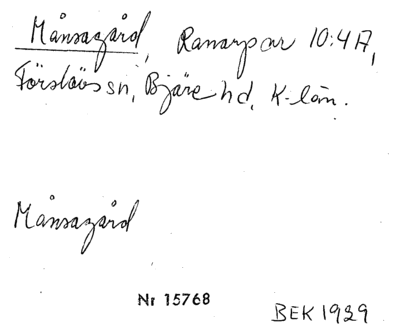 Månsagård, Ranarpar 10:4A,
Förslövs sn, Bjäre hd, K-län.
Månsagård
Nr 15768
BEK 1929